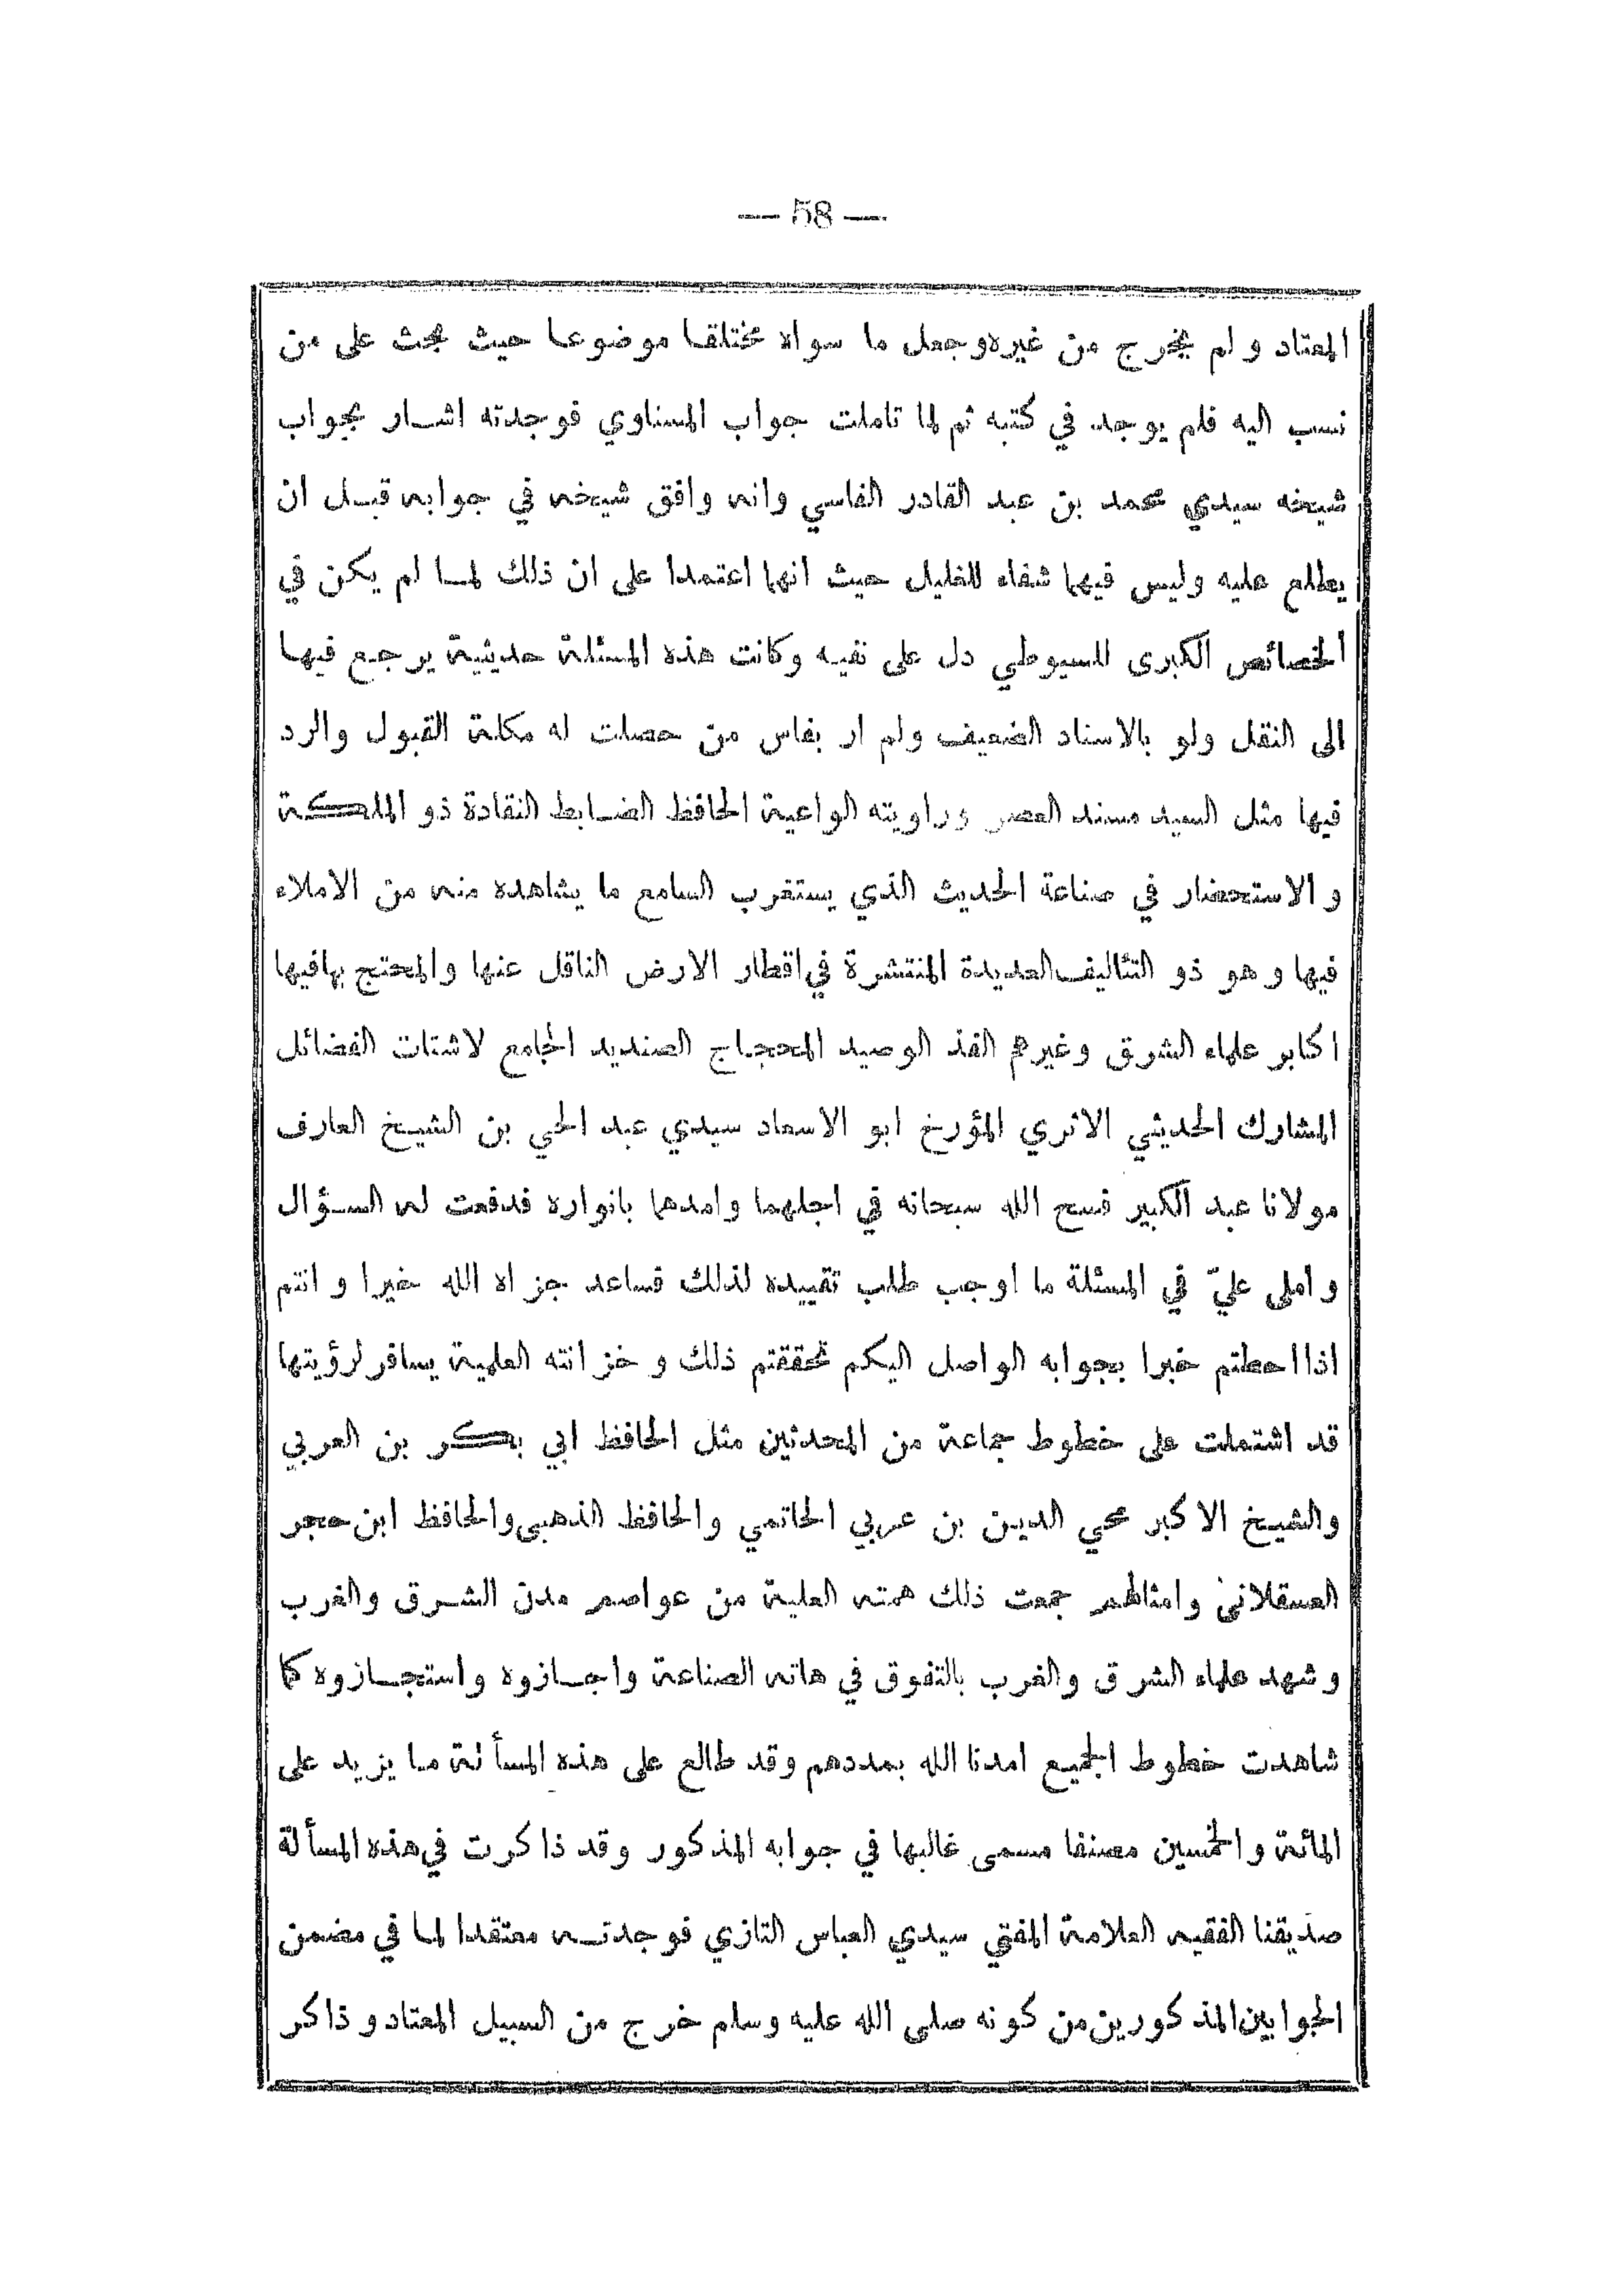 — 58 —
المعتاد ولم يخرج من غيره وجعل ما سواه مختلقا موضوعا حيث بحث على من
نسب اليه فلم يوجد في كتبه ثم لما تاملت جواب المسناوي فوجدته اشار بجواب
شيخه سيدي محمد بن عبد القادر الفاسي وانه وافق شيخه في جوابه قبل ان
يطلع عليه وليس فيهما شفاء للغليل حيث انهما اعتمدا على ان ذلك لما لم يكن في
الخصائص الكبرى للسيوطي دل على نفيه وكانت هذه المسئلة حديثية يرجع فيها
الى النقل ولو بالاسناد الضعيف ولم ار بفاس من حصلت له مكلة القبول والرد
فيها مثل السيد مسند العصر وراويته الواعية الحافظ الضابط النقادة ذو الملكة
والاستحضار في صناعة الحديث الذي يستغرب السامع ما يشاهده منه من الاملاء
فيها وهو ذو التئاليف العديدة المنتشرة في اقطار الارض الناقل عنها والمحتج بهافيها
اكابر علماء الشرق وغيرهم الفذ الوصيد المحجاج الصنديد الجامع لاشتات الفضائل
المشارك الحديثي الاثري المؤرخ ابو الاسعاد سيدي عبد الحي بن الشيخ العارف
مولانا عبد الكبير فسح الله سبحانه في اجلهما وامدهما بانواره فدفعت له السؤال
واملى عليّ في المسئلة ما اوجب طلب تقييده لذلك فساعد جزاه الله خيرا وانتم
اذا احطتم خبرا بجوابه الواصل اليكم تحققتم ذلك وخزانته العلمية يسافر لرؤيتها
قد اشتملت على خطوط جماعة من المحدثين مثل الحافظ ابي بكر بن العربي
والشيخ الاكبر محي الدين بن عربي الحاتمي والحافظ الذهبي والحافظ ابن حجر
العسقلاني وامثالهم جمعت ذلك همته العلية من عواصم مدن الشرق والغرب
وشهد علماء الشرق والغرب بالتفوق في هاته الصناعة واجازوه واستجازوه كما
شاهدت خطوط الجميع امدنا الله بمددهم وقد طالع على هذه المسألة ما يزيد على
المائة والخمسين مصنفا مسمى غالبها في جوابه المذكور وقد ذاكرت في هذه المسألة
صديقنا الفقيه العلامة المفتي سيدي العباس التازي فوجدته معتقدا لما في مضمن
الجوابين المذكورين من كونه صلى الله عليه وسلم خرج من السبيل المعتاد وذاكر